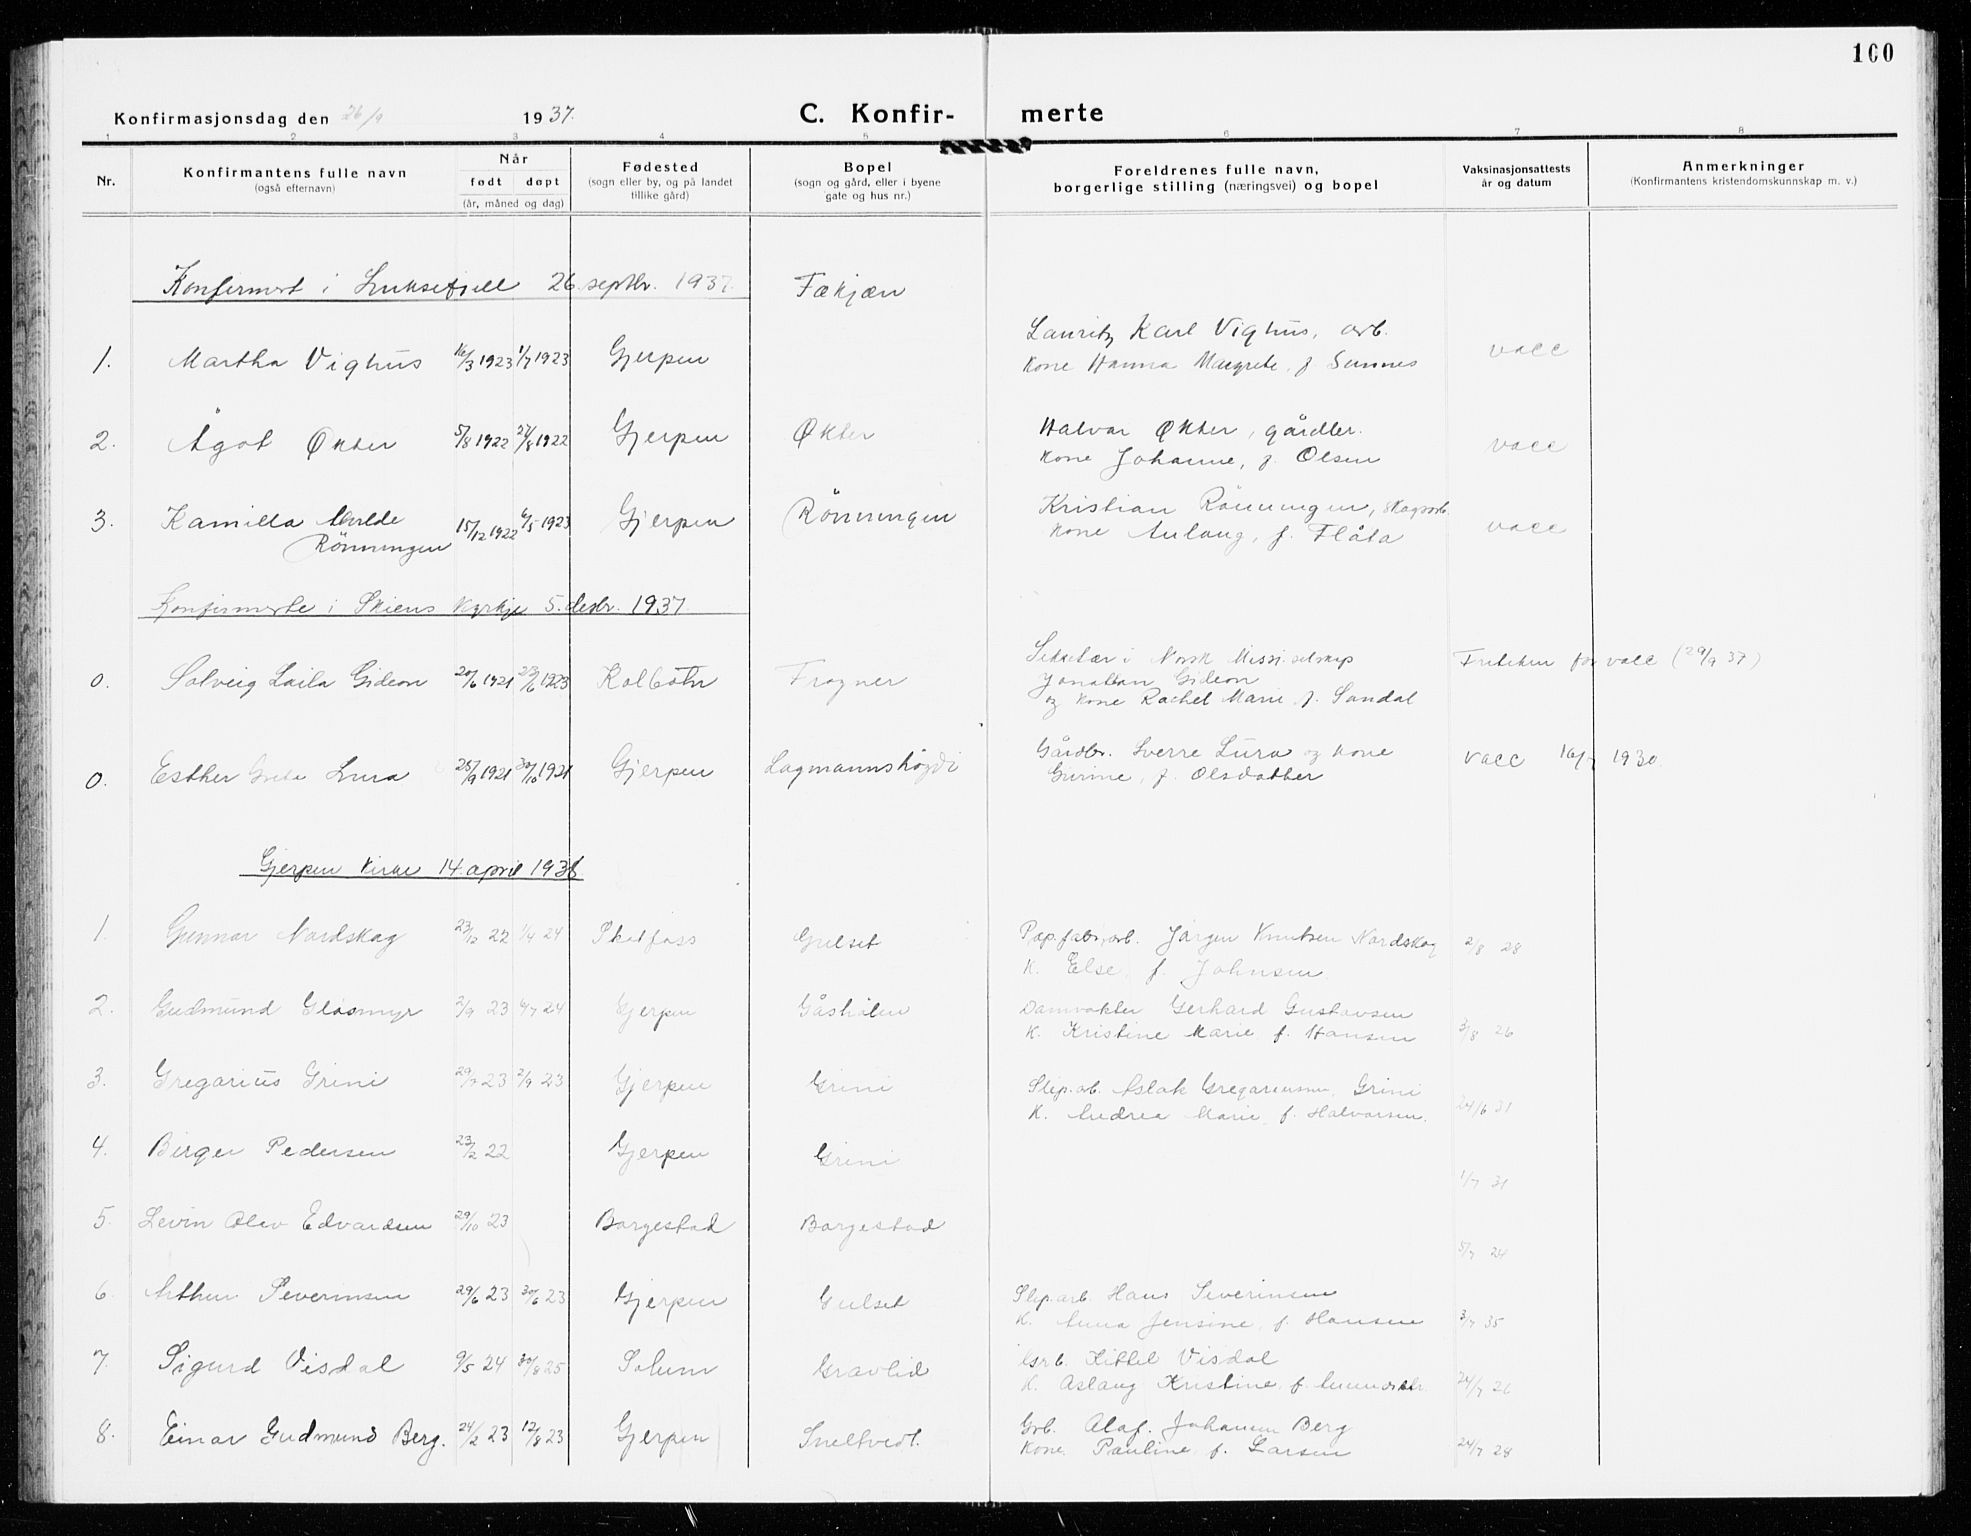 160
Konfirmasjonsdag den 26/9 1937.
C. Konfir- merte
1 2 3 4 5 6 7 8
Nr.
Konfirmantens fulle navn
(også efternavn)
Når
født døpt
(år, måned og dag)
Fødested
(sogn eller by, og på landet
tillike gård)
Bopel
(sogn og gård, eller i byene
gate og hus nr.)
Foreldrenes fulle navn,
borgerlige stilling (næringsvei) og bopel
Vaksinasjonsattests
år og datum
Anmerkninger
(Konfirmantens kristendomskunnskap m. v.)
Konfirmert i Luksefjell 26. septbr. 1937.
Fækjæn
Lauritz Karl Vighus, arb.
1. Martha Vighus 16/3 1923 1/7 1923 Gjerpen vacc
Kone Hanna Margrete, f. Sannes
2. Ågot Økter 5/8 1922 27/8 1922 Gjerpen Økter Halvor Økter, gårdbr. vacc
Kone Johanne, f. Olsen
3. Kamilla Alvilde 15/12 1922 6/5 1923 Gjerpen Rönningen Kristian Rönningen, skogsarb. vacc
Rönningen Kone Aulaug, f. Flåta
Konfirmerte i Skiens kyrkje 5. desbr. 1937.
Sekretær i Norsk Missi.selskap
0. Solveig Laila Gideon 20/6 1921 23/6 1923 Kolbotn Frogner Jonathan Gideon Friteken for vacc (29/9 37)
og kone Rachel Marie f. Sandal
0. Esther Greta Lura 25/9 1921 30/10 1921 Gjerpen Lagmannshögdi Gårdbr. Sverre Lura og kone vacc 16/7 1930.
Gurine, f. Olsdatter
Gjerpen kirke 14. april 1938
1. Gunnar Nordskog 23/12 22 1/4 24 Skotfoss Gulset Pap.fabr.arb. Jörgen Knutsen Nordskog 2/8 28
K. Else, f. Johnsen.
2. Gudmund Glosmyr 2/9 23 6/7 24 Gjerpen Gåsholm Damvokter Gerhard Gustavsen
K. Kristine Marie f. Hansen 3/8 26
3. Gregarius Grini 29/7 23 2/9 23 Gjerpen Grini Slip.arb. Aslak Gregariussen Grini
K. Andrea Marie f. Halvorsen. 24/6 31
4. Birger Pedersen 23/2 22 Gjerpen Grini
1/7 31
5. Levin Olav Edvardsen 29/10 23 Borgestad Borgestad
5/7 24
6. Arthur Severinsen 29/6 23 30/6 23 Gjerpen Gulset Slip.arb. Hans Severinsen
K. Anna Jensine, f. Hansen 3/7 35
7. Sigurd Visdal 9/5 24 30/8 25 Solum Gravlid Grb. Kittel Visdal
K. Aslaug Kristine, f. 24/7 26
8. Einar Gudmund Berg. 24/2 23 12/8 23 Gjerpen Sneltvedt. Grb. Olaf Johannes Berg
Kone Pauline, f. Larsen 24/7 28